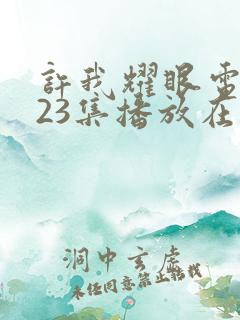 許我耀眼電
23集播放在
洞中玄虛
未任同意禁止轉載